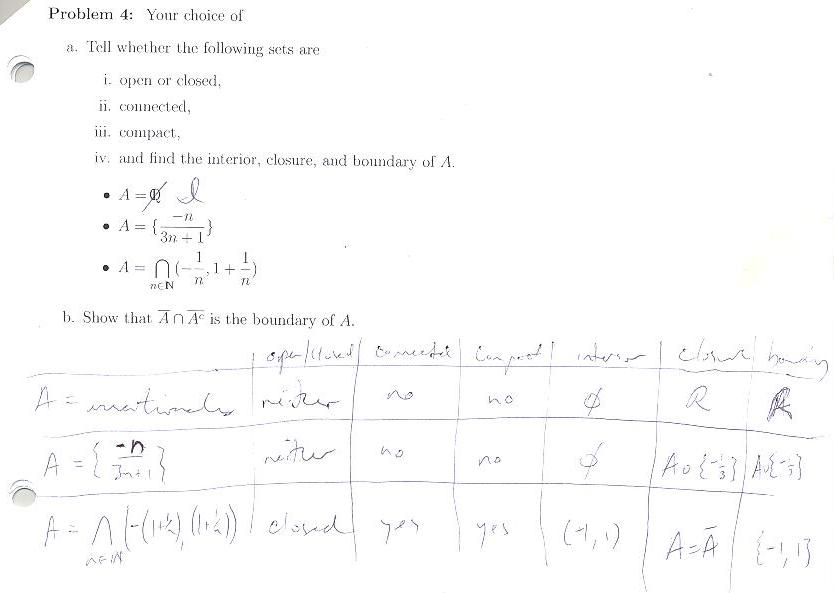 Problem 4: Your choice of
a. Tell whether the following sets are
i. open or closed,
ii. connected,
iii. compact,
iv. and find the interior, closure, and boundary of A.
• A = Q I
• A = {-n/(3n + 1)}
• A = ⋂_{n∈N} (-1/n, 1 + 1/n)
b. Show that A̅ ∩ A̅ᶜ̅ is the boundary of A.
open/closed connected compact interior closure boundary
A = irrationals neither no no ∅ R R
A = {-n/3n+1} neither no no ∅ A∪{-1/3} A∪{-1/3}
A = ⋂_{n∈N} (-(1+1/n), (1+1/n)) closed yes yes (-1, 1) A=A̅ {-1, 1}